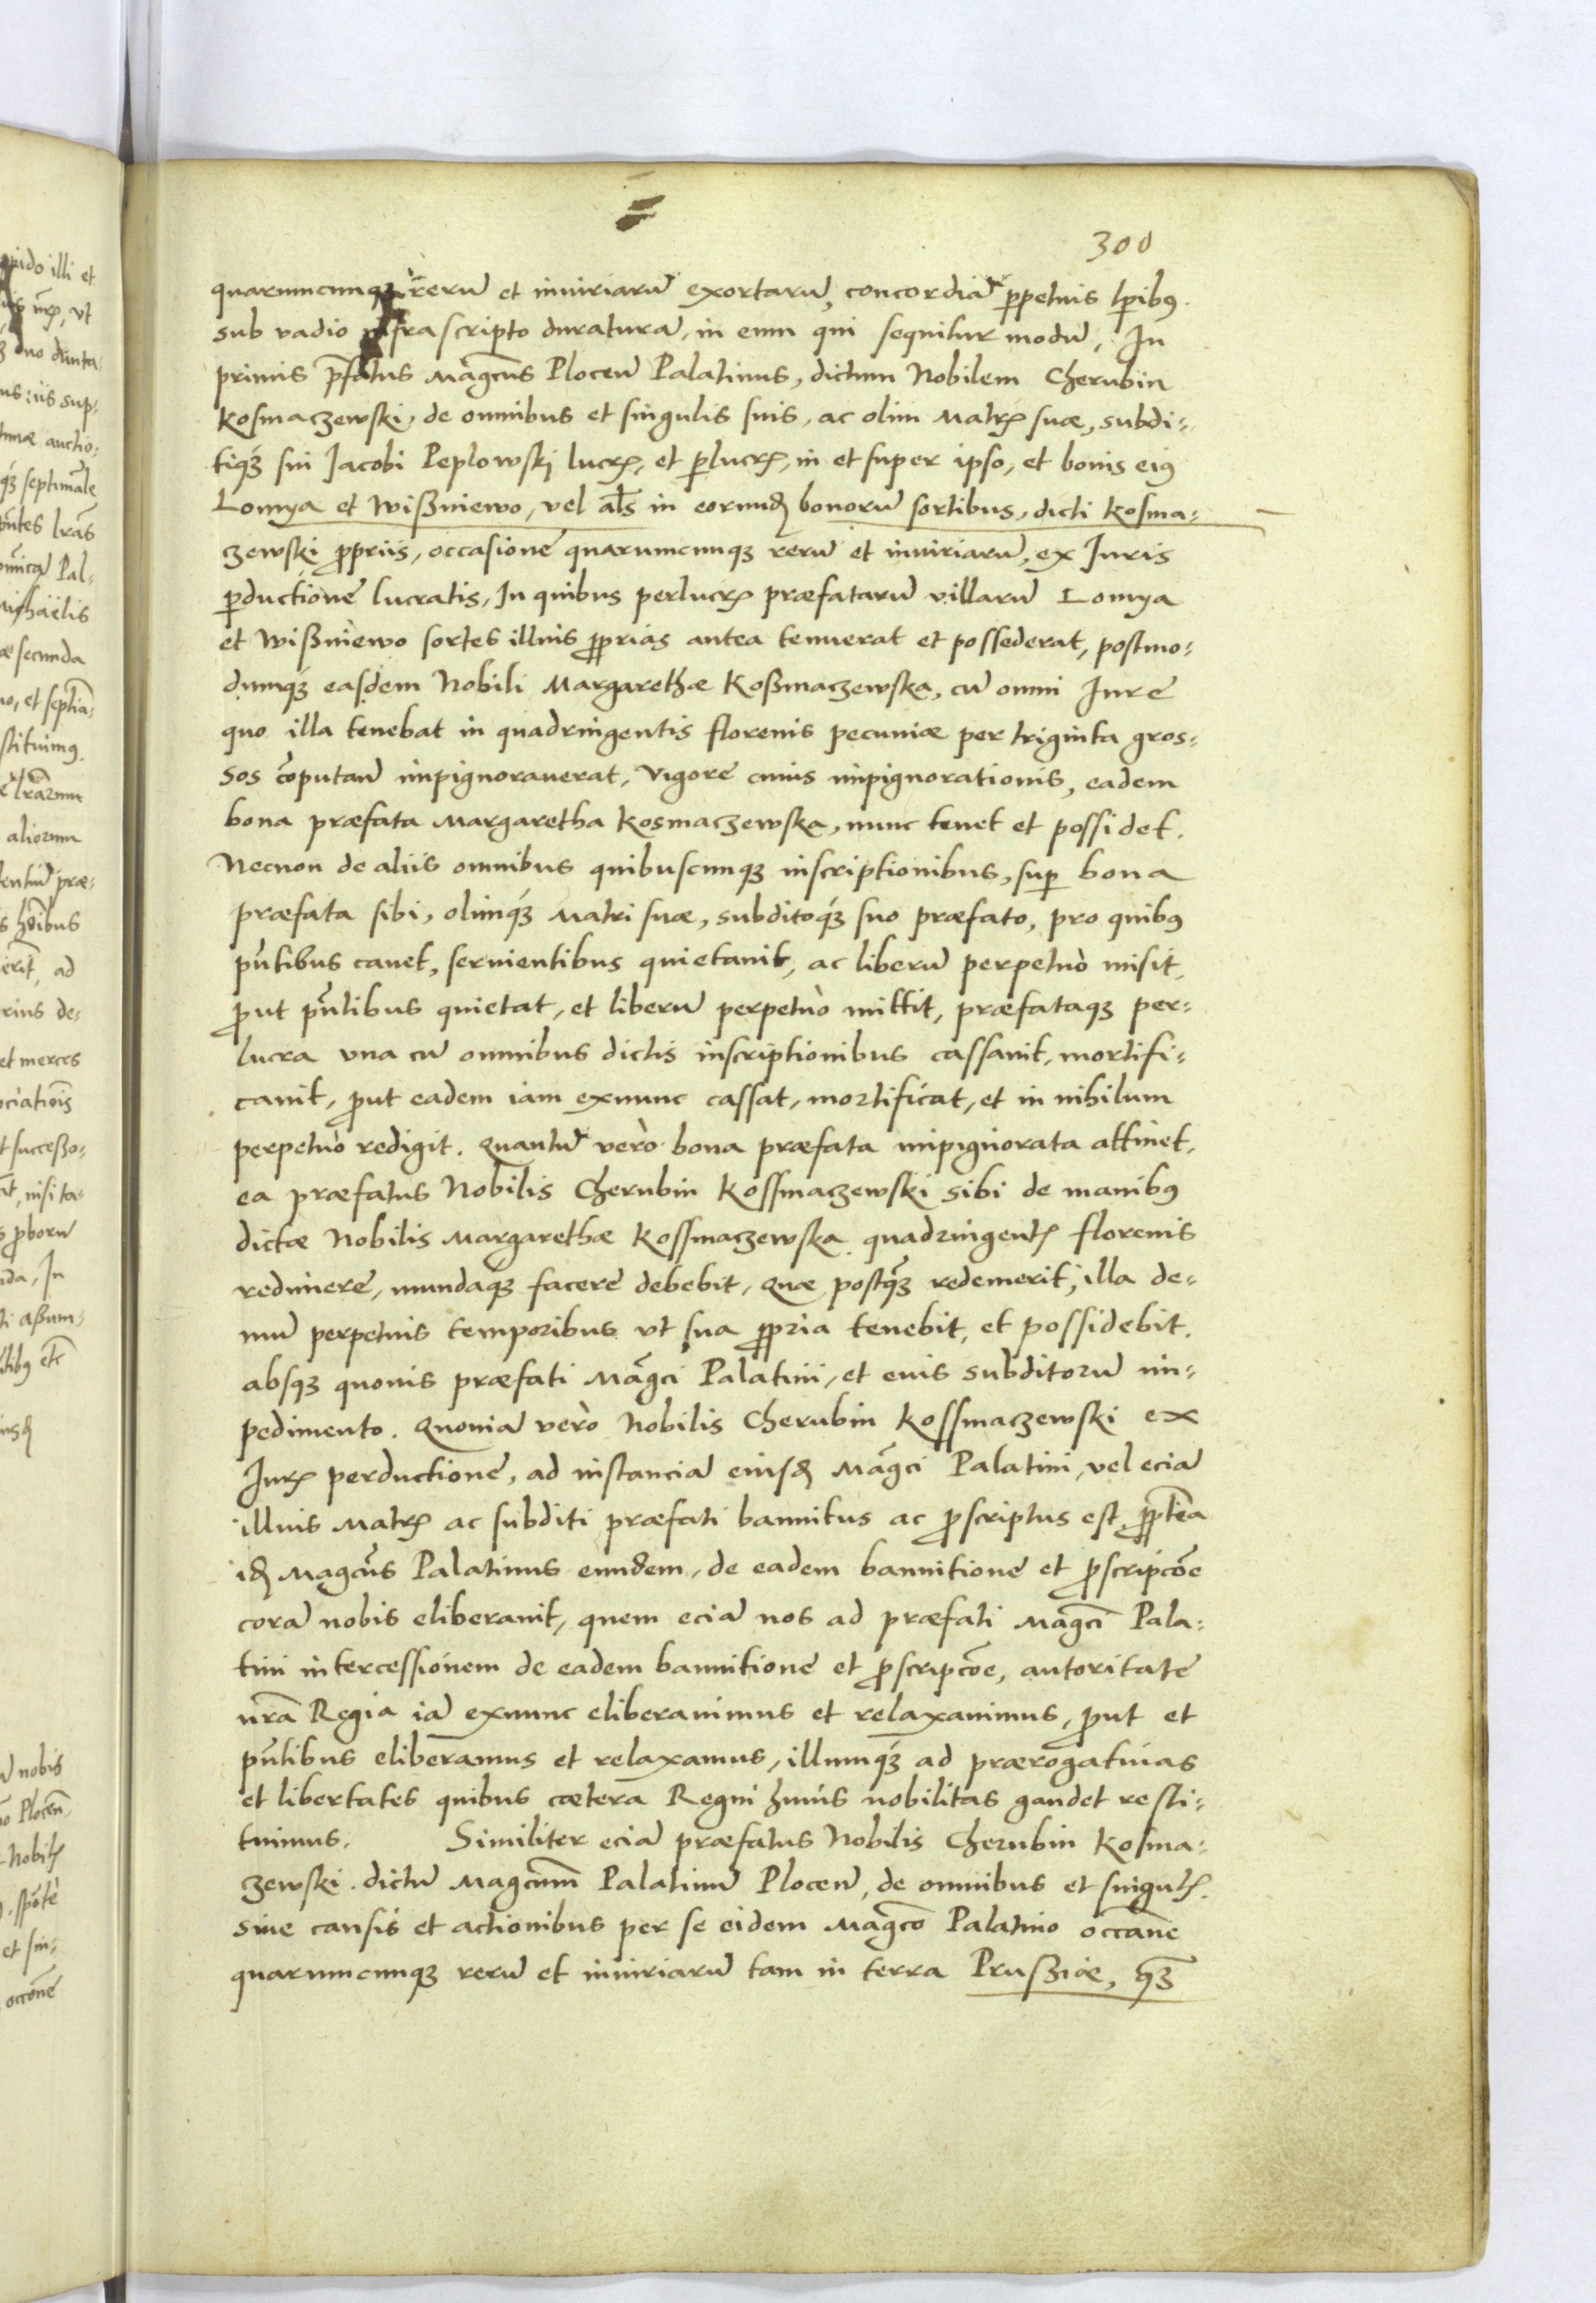 300
quarumcunq₃ rerū et iniuriarū exortarū, concordiā ꝑpetuis tꝑibꝰ
sub vadio infrascripto duraturā, in eum qui sequitur modū, In
primis p̄fatus Māgcus Plocen̄ Palatinus, dictum Nobilem Cherubin
Kosmaczewski, de omnibus et singulis suis, ac olim Matrꝭ suæ, subdi-
tiq₃ sui Jacobi Peplowski lucrꝭ, et ꝑlucrꝭ, in et super ipso, et bonis eiꝰ
Lomya et Wißniewo, vel al̄s in eorund̨ bonorū sortibus, dicti Kosma-
czewski ꝓpriis, occasione quarumcunq₃ rerū et iniuriarū, ex Juris
ꝑductione lucratis, In quibus perlucrꝭ præfatarū villarū Lomya
et Wißniewo sortes illius ꝓprias antea tenuerat et possederat, postmo-
dumq₃ easdem Nobili Margarethæ Koßmaczewska, cū omni Jure
quo illa tenebat in quadringentis florenis pecuniæ per triginta gros-
sos cōputan̄ impignorauerat, Vigore cuius impignorationis, eadem
bona præfata Margaretha Kosmaczewska, nunc tenet et possidet.
Necnon de aliis omnibus quibuscunq₃ inscriptionibus, suꝑ bona
præfata sibi, olimq₃ Matri suæ, subditoq₃ suo præfato, pro quibꝰ
pn̄tibus cauet, seruientibus quietauit, ac liberū perpetuò misit,
ꝓut pn̄tibus quietat, et liberū perpetuò mittit, præfataq₃ per-
lucra vna cū omnibus dictis inscriptionibus cassauit, mortifi-
cauit, ꝓut eadem iam exnunc cassat, mortificat, et in nihilum
perpetuò redigit. Quantū verò bona præfata impignorata attinet,
ea præfatus Nobilis Cherubin Kossmaczewski sibi de manibꝰ
dictæ Nobilis Margarethæ Kossmaczewska quadringentꝭ florenis
redimere, mundaq₃ facere debebit, Quæ postq̄₃ redemerit, illa de-
mū perpetuis temporibus vt sua ꝓpria tenebit, et possidebit,
absq₃ quouis præfati Māgci Palatini, et euis subditorū im-
pedimento. Quoniā verò Nobilis Cherubin Kossmaczewski ex
Jurꝭ perductione, ad instanciā eiusd̨ Māgci Palatini, vel eciā
illius Matrꝭ ac subditi præfati bannitus ac ꝓscriptus est, ꝓpt̄ea
id̨ Magc̄us Palatinus eundem, de eadem bannitione et ꝓscripcōe
corā nobis eliberauit, quem eciā nos ad præfati Māgci Pala-
tini intercessionem de eadem bannitione et ꝓscripcōe, autoritate
nr̄a Regia iā exnunc eliberauimus et relaxauimus, ꝓut et
pn̄tibus eliberamus et relaxamus, illumq₃ ad prærogatiuas
et libertates quibus cætera Regni huius nobilitas gaudet resti-
tuimus. Similiter eciā præfatus Nobilis Cherubin Kosma-
zewski dictū Magcum̄ Palatinū Plocen̄, de omnibus et singulꝭ
siue causis et actionibus per se eidem Magc̄o Palatino occ̄ane
quarumcunq₃ rerū et iniuriarū tam in terra Prußiæ, q̄₃